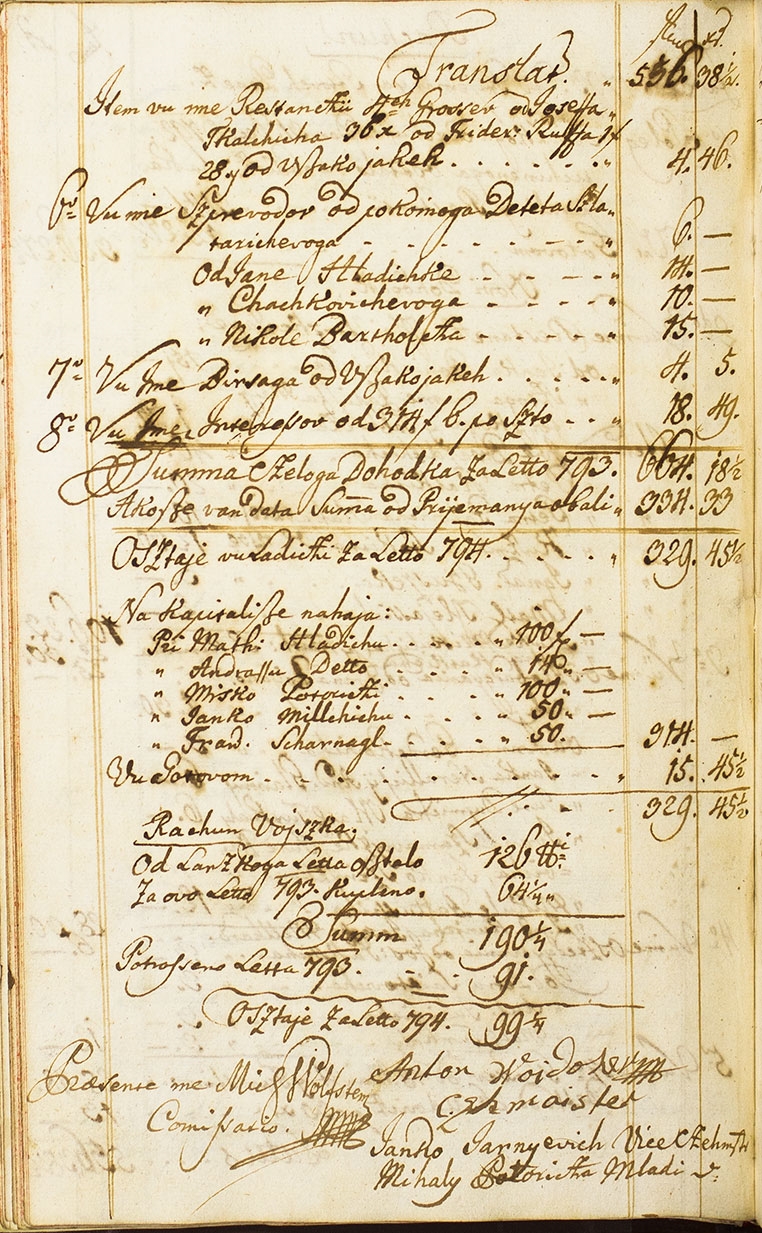 flor. xr.
Translat. „ 536. 38½.
Item vu ime Restanckii 4eh Grossev od Joseffa „
Tkalchicha 36x od Frider: 1f
28.y od vßakojakeh . . . . . . . „ 4. 46.
6o Vu ime Szprevodov od pokoinoga Deteta Szla „
tarichevoga - - - - - - „ 6. —
Od Jane Hladichke - - - - „ 14. —
„ Chachkovichevoga - - - - „ 10. —
„ Nikole Bartholetha - - - - „ 15. —
7o Vu Ime Birsaga od Vßakojakeh . . . . . „ 4. 5.
8o Vu Ime Interessov od 314f 6. po Szto . . „ 18. 49.
Summa Czeloga Dohodka Za Letto 793. 664. 18½
Akoße van data Sum̄a od Prijemanya obali „ 334. 33
Osztaje vu Ladichi Za Letto 794. . . . . „ 329. 45½
Na Kapitaliße nahaja:
Pri Mathi Hladichu . . . . „ 100f —
„ Andrassu Detto . . . . „ 14„ —
„ Misko . . . . „ 100„ —
„ Janko Millchichu . . . . „ 50„ —
„ Franc. Scharnagl . . . . „ 50. 314. —
Vu Gotovom . . . . . . . . . . . „ 15. 45½
„ . - „ 329. 45½
Rachun Vojszka.
Od Lanzkoga Letta osztalo 126 ℔i
Za ovo Letto 793. Kuplino. 64¼„
Summ 190¼
Potrosseno Letta 793. - - 91.
Osztaje Za Letto 794. 99¼
Præsente me Mich Wolfstein Anton
Comissario. Czehmaister
Janko Jarnyevich Vice Czehmstr
Mihaly Mladi